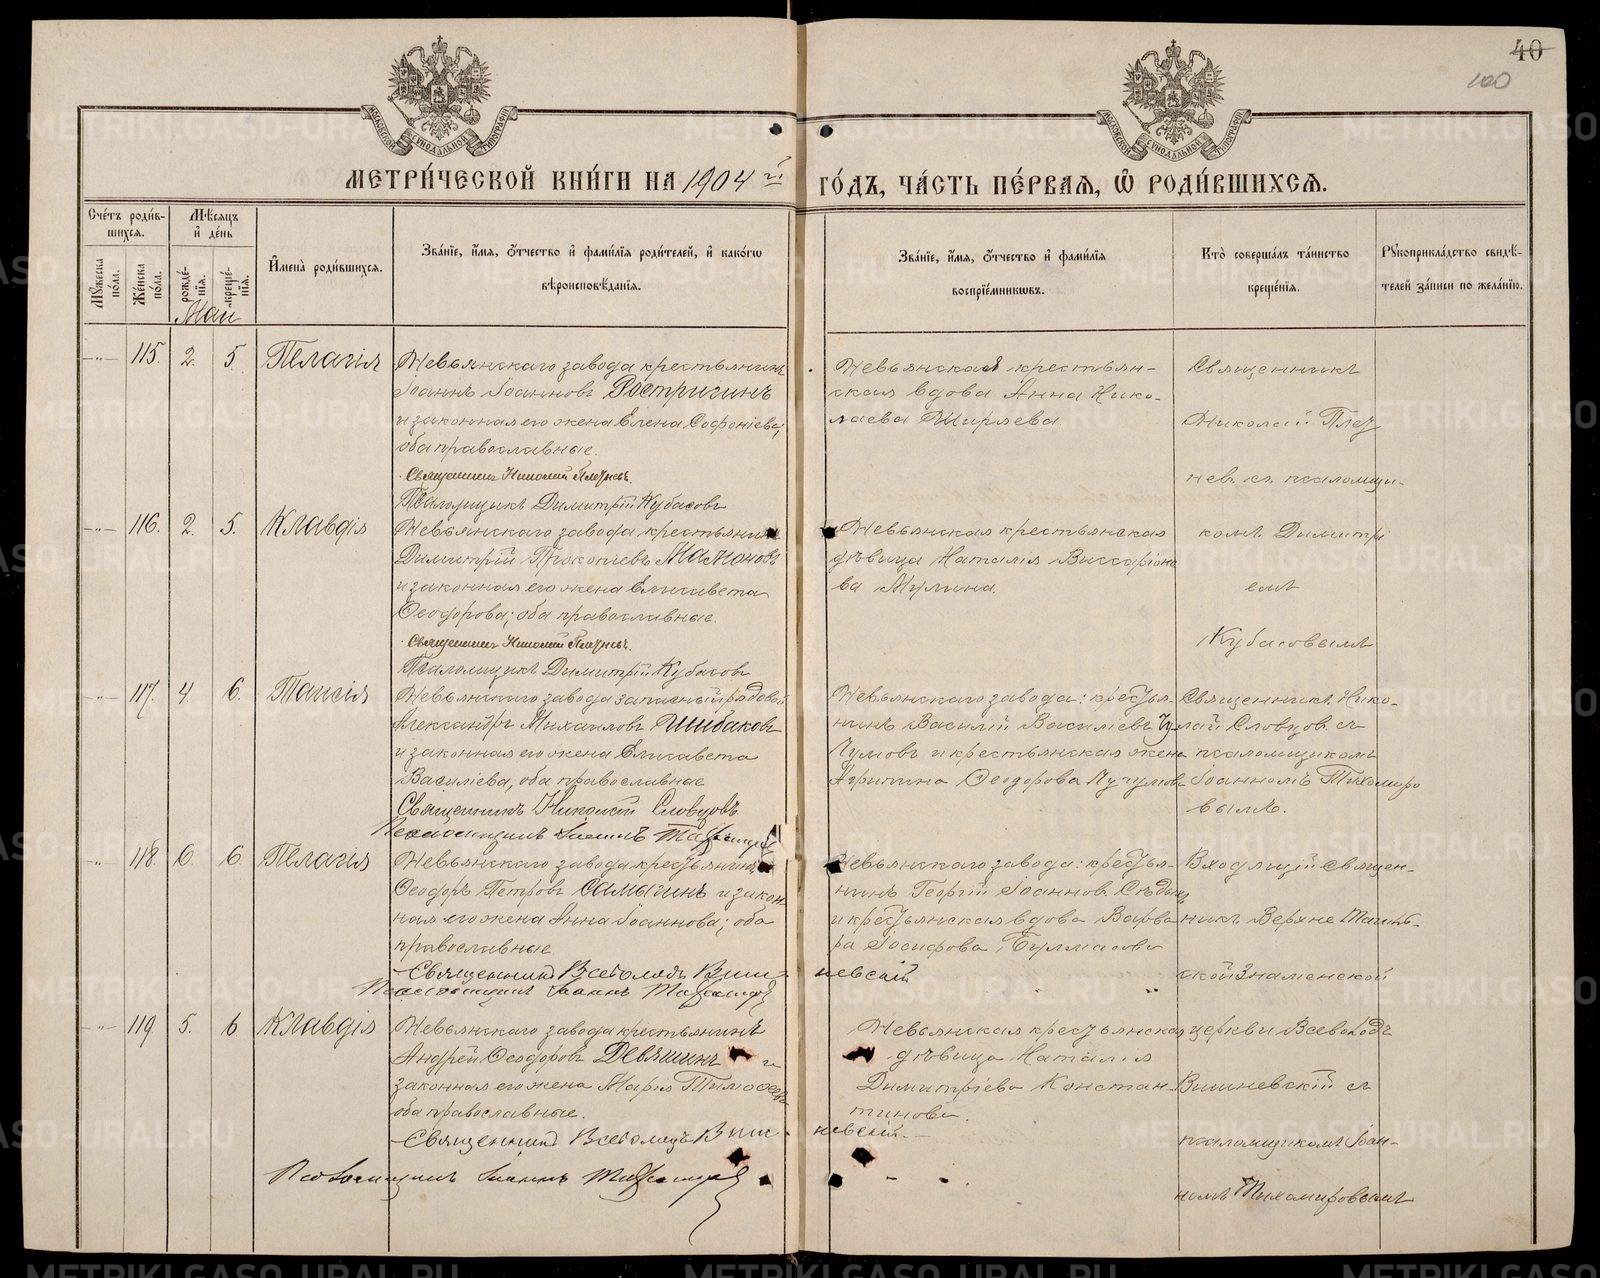 40
100
МОСКОВСКОЙ СѴНОДАЛЬНОЙ ТИПОГРАФІИ
МОСКОВСКОЙ СѴНОДАЛЬНОЙ ТИПОГРАФІИ
МЕТРИ́ЧЕСКОЙ КНИ́ГИ НА 1904 й ГО́ДЪ, ЧА́СТЬ ПЕ́РВАЯ, Ѿ РОДИ́ВШИХСЯ.
Сче́тъ роди́в-
шихся.
Мꙋжеска по́ла.
Же́нска по́ла.
Мѣ́сяцъ
и҆ де́нь
рожде́-
нїя.
креще́-
нїя.
И҆мена̀ роди́вшихся.
Зва́нїе, и҆́мя, ѻ҆́тчество и҆ фами́лїя роди́телей, и҆ како́гѡ
вѣроисповѣ́данїя.
Зва́нїе, и҆́мя, ѻ҆́тчество и҆ фами́лїя
воспрїе́мникѡвъ.
Кто̀ соверша́лъ та́инство
креще́нїя.
Рꙋкоприкла́дство свидѣ́-
телей за́писи по жела́нїю.
Май
-"- 115. 2. 5. Пелагія
Невьянскаго завода крестьянинъ
Іоаннъ Іоанновъ Ростригинъ
и законная его жена Елена Софоніева,
оба православные.
Священникъ Николай Плетневъ.
Псаломщикъ Димитрій Кубасовъ
Невьянская крестьян-
ская вдова Анна Нико-
лаева Ширяева.
Священникъ
Николай Плет
невъ съ псаломщи-
-"- 116. 2. 5. Клавдія
Невьянскаго завода крестьянинъ
Димитрій Прокопіевъ Мамоновъ
и законная его жена Елисавета
Ѳеодорова; оба православные.
Священникъ Николай Плетневъ.
Псаломщикъ Димитрій Кубасовъ
Невьянская крестьянская
дѣвица Наталія Виссаріоно
ва Мулина.
комъ Димитрі
емъ
Кубасовымъ
-"- 117. 4. 6. Таисія
Невьянскаго завода запасный рядовой
Александръ Михаиловъ Шибаковъ
и законная его жена Елисавета
Василіева, оба православные
Священникъ Николай Словцовъ
Псаломщикъ Іоаннъ Тихомировъ
Невьянскаго завода: крестья-
нинъ Василій Василіевъ
и крестьянская жена
Агрипина Ѳеодорова
Священникъ Нико-
лай Словцовъ съ
псаломщикомъ
Іоанномъ Тихомиро
вымъ.
-"- 118. 6. 6 Пелагія
Невьянскаго завода крестьянинъ
Ѳеодоръ Петровъ Самыгинъ и закон-
ная его жена Анна Іоаннова; оба
православные
Священникъ Всеволодъ Виш-невскій
Псаломщикъ Іоаннъ Тихомировъ
Невьянскаго завода: крестья-
нинъ Георгій Іоанновъ
и крестьянская вдова Варва
ра Іосифова
Входящій священ-
никъ Верхне Тагиль-
ской Знаменской
-"- 119 5. 6 Клавдія
Невьянскаго завода крестьянинъ
Андрей Ѳеодоровъ Девяшинъ и
законная его жена Марія Тимоѳеева
оба православные.
Священникъ Всеволодъ Виш-невскій.
Псаломщикъ Іоаннъ Тихомировъ
Невьянская крестьянская
дѣвица Наталія
Димитріева Констан-
тинова.
церкви Всеволодъ
Вишневскій съ
псаломщикомъ Іоан-
номъ Тихомировымъ
METRIKI.GASO-URAL.RU